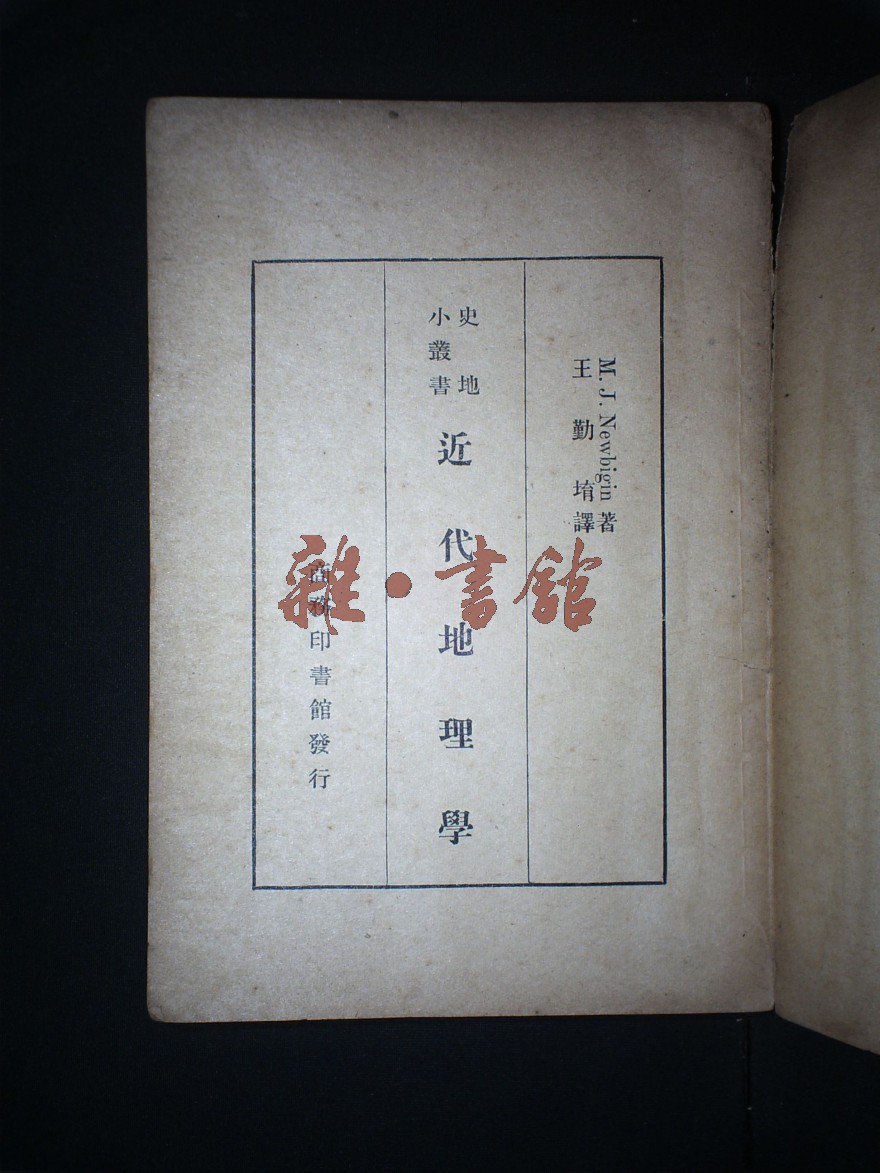 M. J. Newbigin 著
王勤堉譯
史地
小叢書
近代地理學
商務印書館發行
雜·書館